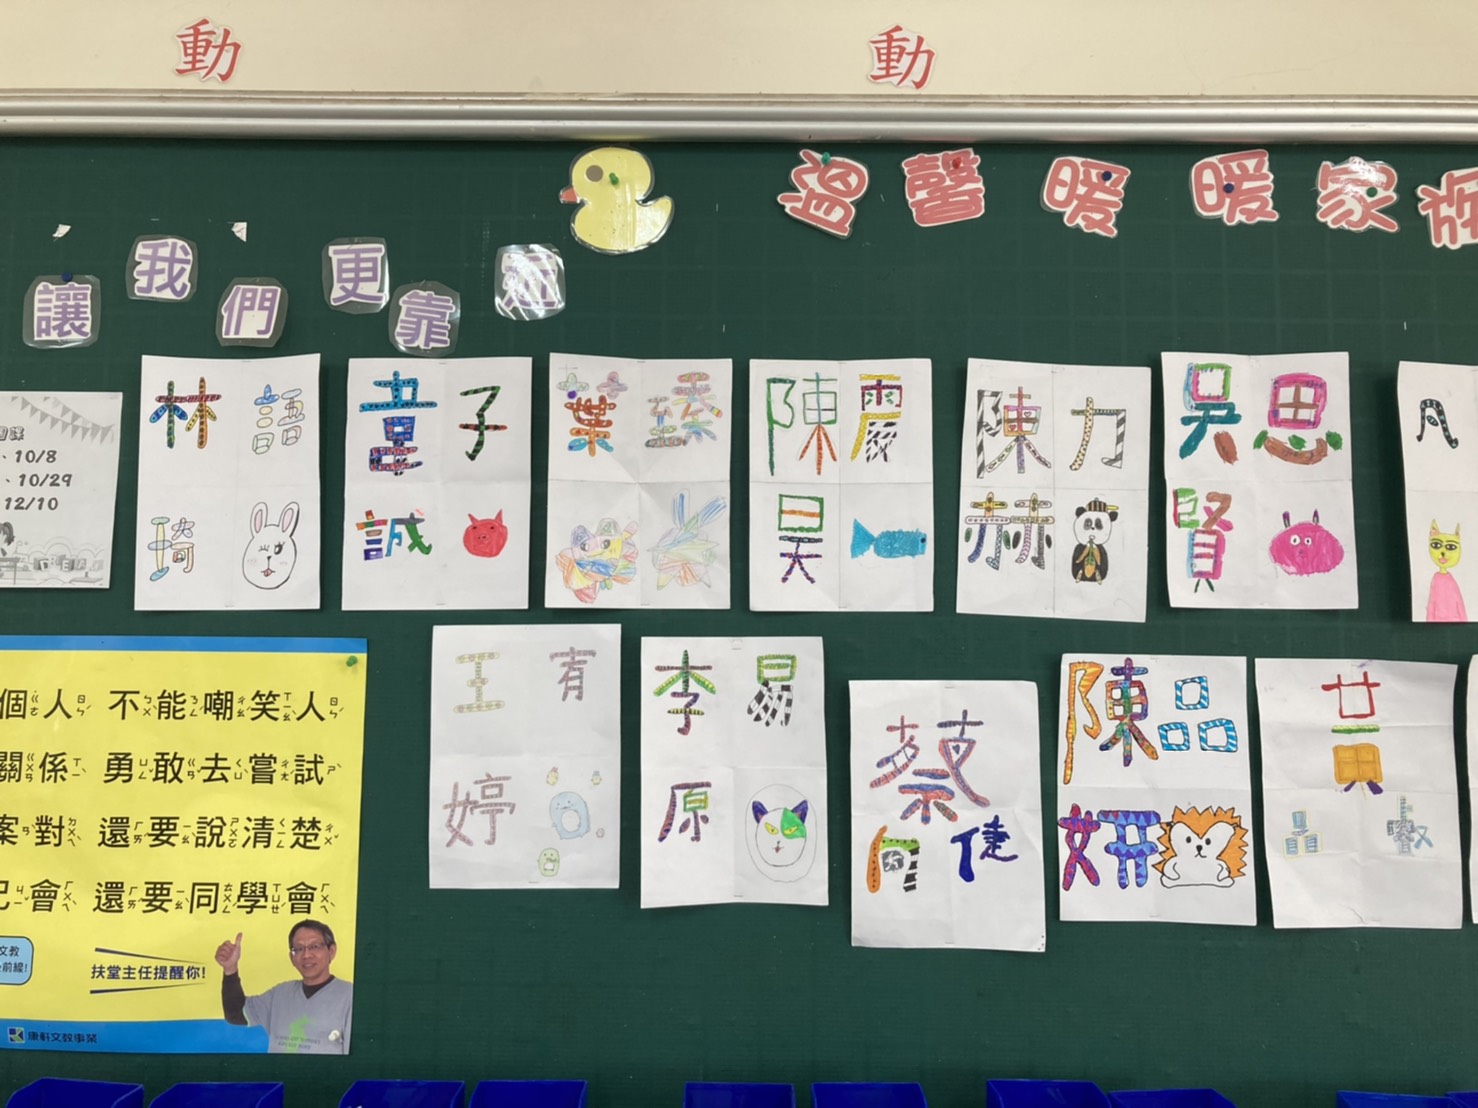 動 動
溫馨暖暖家族
讓我們更靠近
課
、10/8
、10/29
12/10
林語
童子
誠
葉
陳震
昊
陳力
赫
吳思
賢
王宥
婷
李易
原
蔡
侑倢
陳品
妍
黃
個人ㄍㄜˋㄖㄣˊ 不能嘲笑人ㄅㄨˋㄋㄥˊㄔㄠˊㄒㄧㄠˋㄖㄣˊ
關係ㄍㄨㄢㄒㄧ 勇敢去嘗試ㄩㄥˇㄍㄢˇㄑㄩˋㄔㄤˊㄕˋ
案對ㄢˋㄉㄨㄟˋ 還要說清楚ㄏㄞˊㄧㄠˋㄕㄨㄛㄑㄧㄥㄔㄨˇ
己會ㄐㄧˇㄏㄨㄟˋ 還要同學會ㄏㄞˊㄧㄠˋㄊㄨㄥˊㄒㄩㄝˊㄏㄨㄟˋ
文教
前線!
扶堂主任提醒你!
康軒文教事業